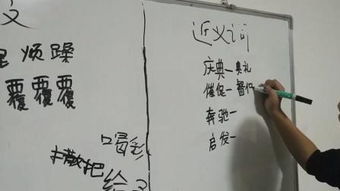 文
烦躁
覆覆覆
喝彩
扫散把
近义词
庆典一典礼
催促一督促
奔驰一
启发一